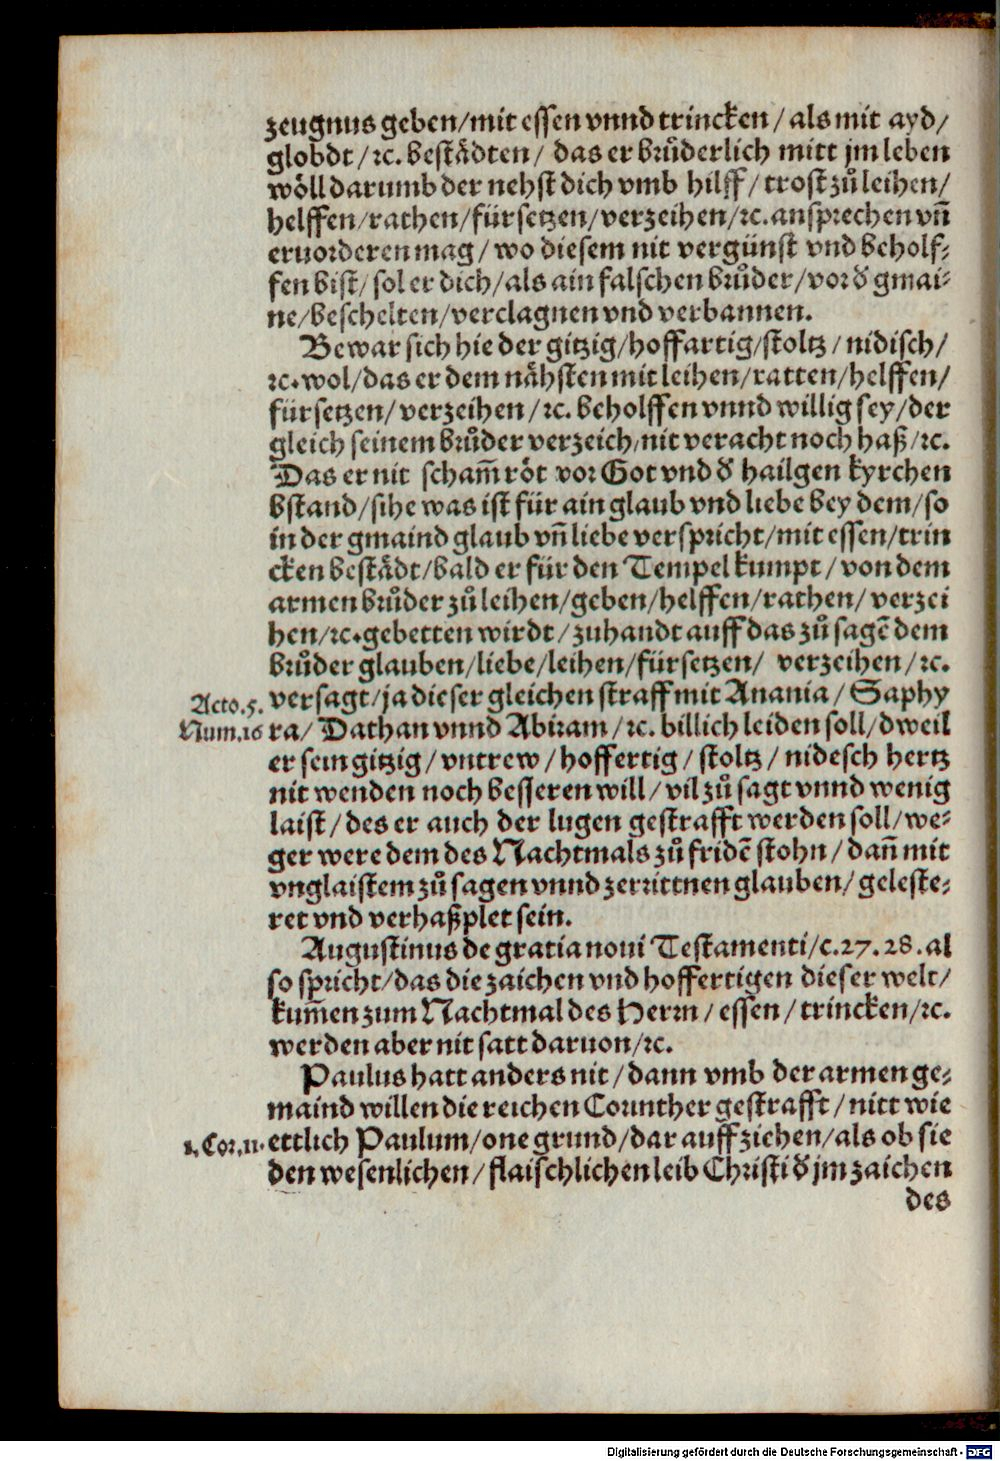 zeugnus geben/mit essen vnnd trincken/ als mit ayd/
globdt/ꝛc. bestådten/ das er bruͦderlich mitt jm leben
wöll darumb der nehst dich vmb hilff/ trost zuͦ leihen/
helffen/rathen/fürsetzen/verzeihen/ꝛc. ansprechen vñ
eruorderen mag/ wo diesem nit vergünst vnd beholf⸗
fen bist/ sol er dich/als ain falschen bruͦder/vor ď gmai⸗
ne/beschelten/verclagnen vnd verbannen.
Bewar sich hie der gitzig/hoffartig/stoltz/ nidisch/
ꝛc. wol/das er dem nåhsten mit leihen/ratten/helffen/
fürsetzen/verzeihen/ꝛc. beholffen vnnd willig sey/der
gleich seinem bruͦder verzeich/nit veracht noch haß/ꝛc.
Das er nit scham̄röt vor Got vnd ď hailgen kyrchen
bstand/sihe was ist für ain glaub vnd liebe bey dem/so
in der gmaind glaub vñ liebe verspricht/mit essen/trin
cken bestådt/bald er für den Tempel kumpt/ von dem
armen bruͦder zuͦ leihen/geben/helffen/rathen/ verzei
hen/ꝛc. gebetten wirdt/ zuhandt auff das zuͦ sagẽ dem
bruͦder glauben/liebe/leihen/fürsetzen/ verzeihen/ꝛc.
Acto.5. versagt/ja dieser gleichen straff mit Anania/ Saphy
Num.16 ra/ Dathan vnnd Abiram/ꝛc. billich leiden soll/dweil
er sein gitzig/ vntrew/ hoffertig/ stoltz/ nidesch hertz
nit wenden noch besseren will/ vil zuͦ sagt vnnd wenig
laist/ des er auch der lugen gestrafft werden soll/we⸗
ger were dem des Nachtmals zuͦ fridẽ stohn/ dañ mit
vnglaistem zuͦ sagen vnnd zerrittnen glauben/ geleste⸗
ret vnd verhaßplet sein.
Augustinus de gratia noui Testamenti/c.27.28. al
so spricht/das die zaichen vnd hoffertigen dieser welt/
kum̄en zum Nachtmal des Herrn/ essen/ trincken/ꝛc.
werden aber nit satt daruon/ꝛc.
Paulus hatt anders nit/ dann vmb der armen ge⸗
maind willen die reichen Corinther gestrafft/ nitt wie
1.Cor.11. ettlich Paulum/one grund/dar auff ziehen/als ob sie
den wesenlichen/ flaischlichen leib Christi ď jm zaichen
des
Digitalisierung gefördert durch die Deutsche Forschungsgemeinschaft - DFG